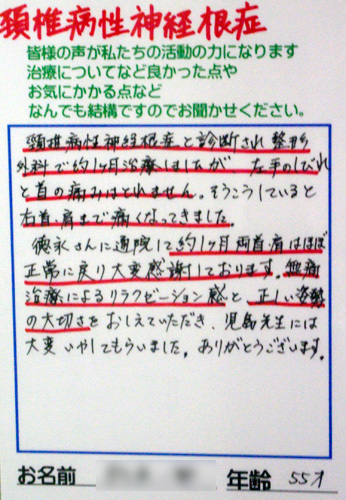 頚椎病性神経根症
皆様の声が私たちの活動の力になります
治療についてなど良かった点や
お気にかかる点など
なんでも結構ですのでお聞かせください。
頸椎病性神経根症と診断され整形
外科で約1ヶ月治療しましたが、左手のしびれ
と首の痛みはとれません。そうこうしていると
右首、肩まで痛くなってきました。
徳永さんに通院して約1ヶ月両首肩はほぼ
正常に戻り大変感謝しております。無痛
治療によるリラクゼーション感と正しい姿勢
の大切さをおしえていただき、児島先生には
大変いやしてもらいました。ありがとうございます。
お名前
年齢 55才